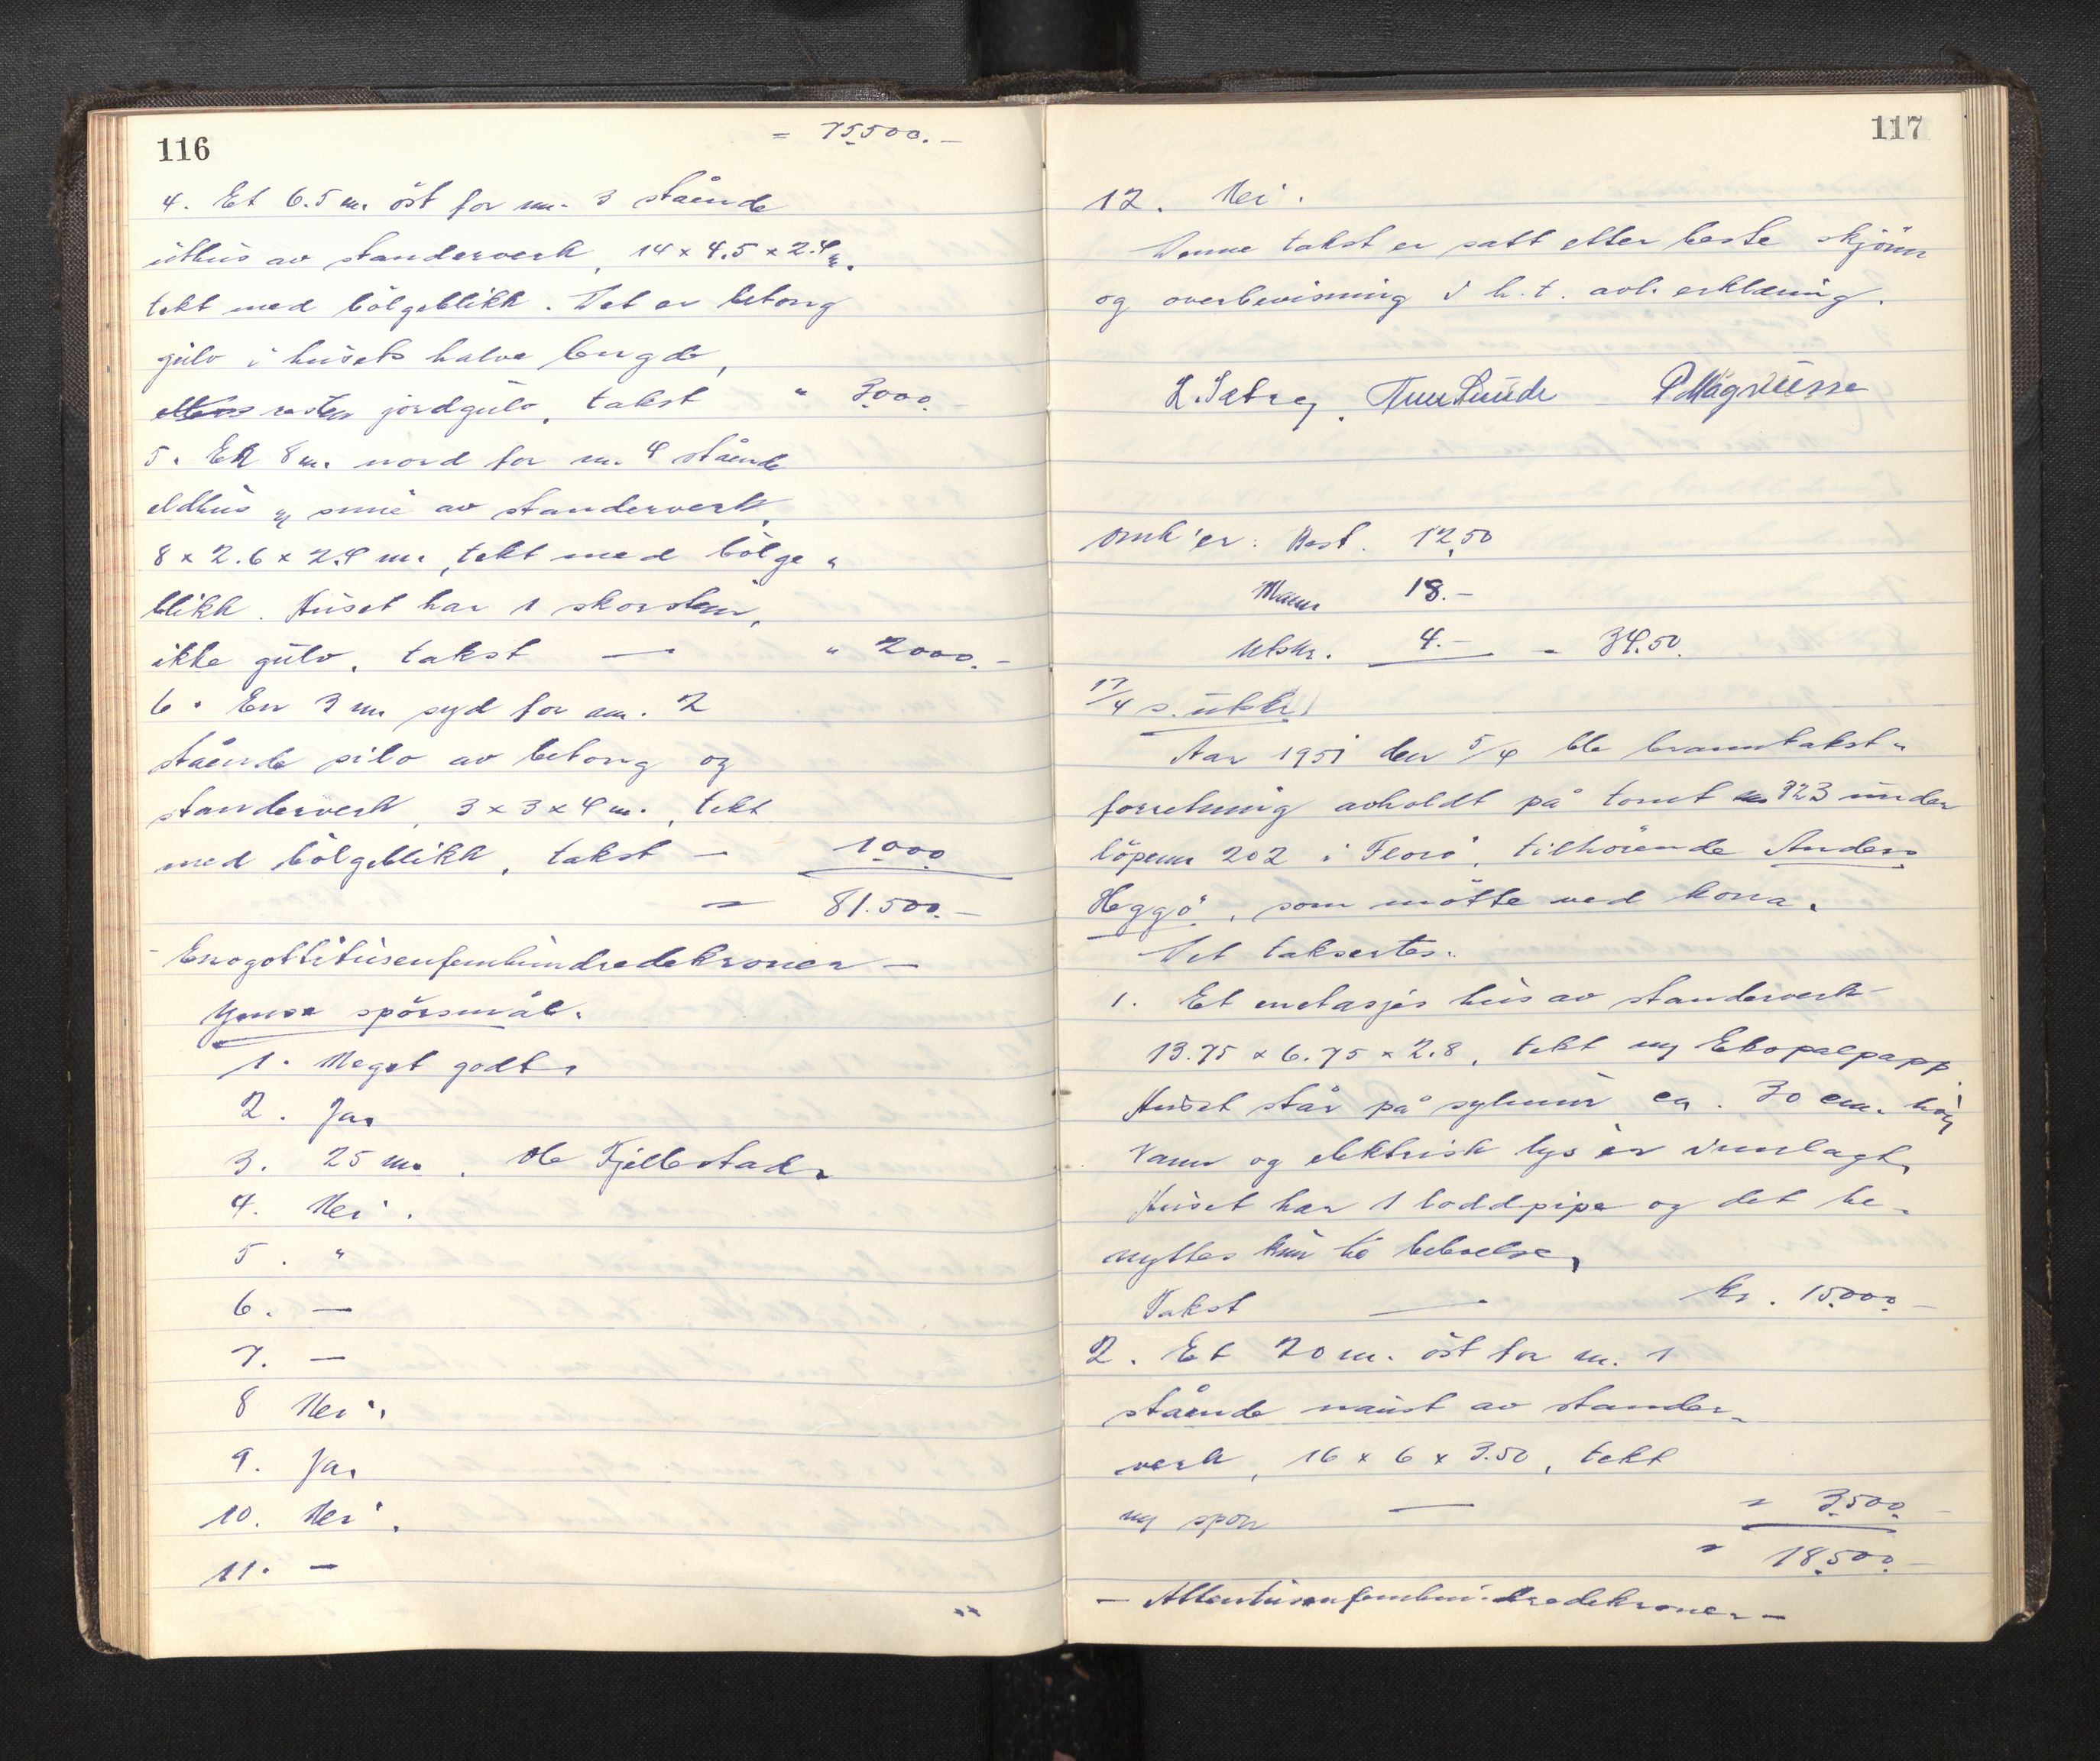 116
= 75500.-
4. Et 6.5 m. öst for nr. 3 stående
uthus av standerverk, 14 x 4.5 x 2.4 m.
tekt med bölgeblikk. Det er betong
gulv i husets halve lengde,
resten jordgulv, takst " 3000.
5. Et 8 m. nord for nr. 4 stående
eldhus og smie av standerverk,
8 x 2.6 x 2.4 m., tekt med bölge-
blikk. Huset har 1 skorsten,
ikke gulv, takst — " 2000.-
6. En 3 m syd for nr. 2
stående silo av betong og
standerverk, 3 x 3 x 4 m., tekt
med bölgeblikk, takst — 1000
= 81.500.-
- Enogottitusenfemhundredekroner -
Ymse spörsmål.
1. Meget godt.
2. Ja.
3. 25 m. Ole Fjellestad.
4. Nei.
5. "
6. —
7. —
8 Nei.
9. Ja.
10. Nei.
11. —
117
12. Nei.
Denne takst er satt etter beste skjönn
og overbevisning i h.t. avl. erklæring.
L. Sætrey. P. Magnusse
Omk'er: Best. 12,50
Mann 18.-
Utskr. 4.- = 34.50.
17/4 s. utskr.
Aar 1951 den 5/4 ble branntakst-
forretning avholdt på tomt nr 923 under
löpenr 202 i Florö, tilhörende Anders
Heggö, som mötte ved kona.
Det taksertes:
1. Et enetasjes hus av standerverk
13.75 x 6.75 x 2.8, tekt m/ Ekopalpapp.
Huset står på sylmur ca. 30 cm. höy
Vann og elektrisk lys er innlagt.
Huset har 1 loddpipe og det be-
nyttes kun til beboelse,
Takst — kr. 15.000.-
2. Et 20 m. öst for nr. 1
stående naust av stander-
verk, 16 x 6 x 3.50, tekt
m/ spon — " 3.500.-
= 18.500.-
- Attentusenfemhundredekroner -